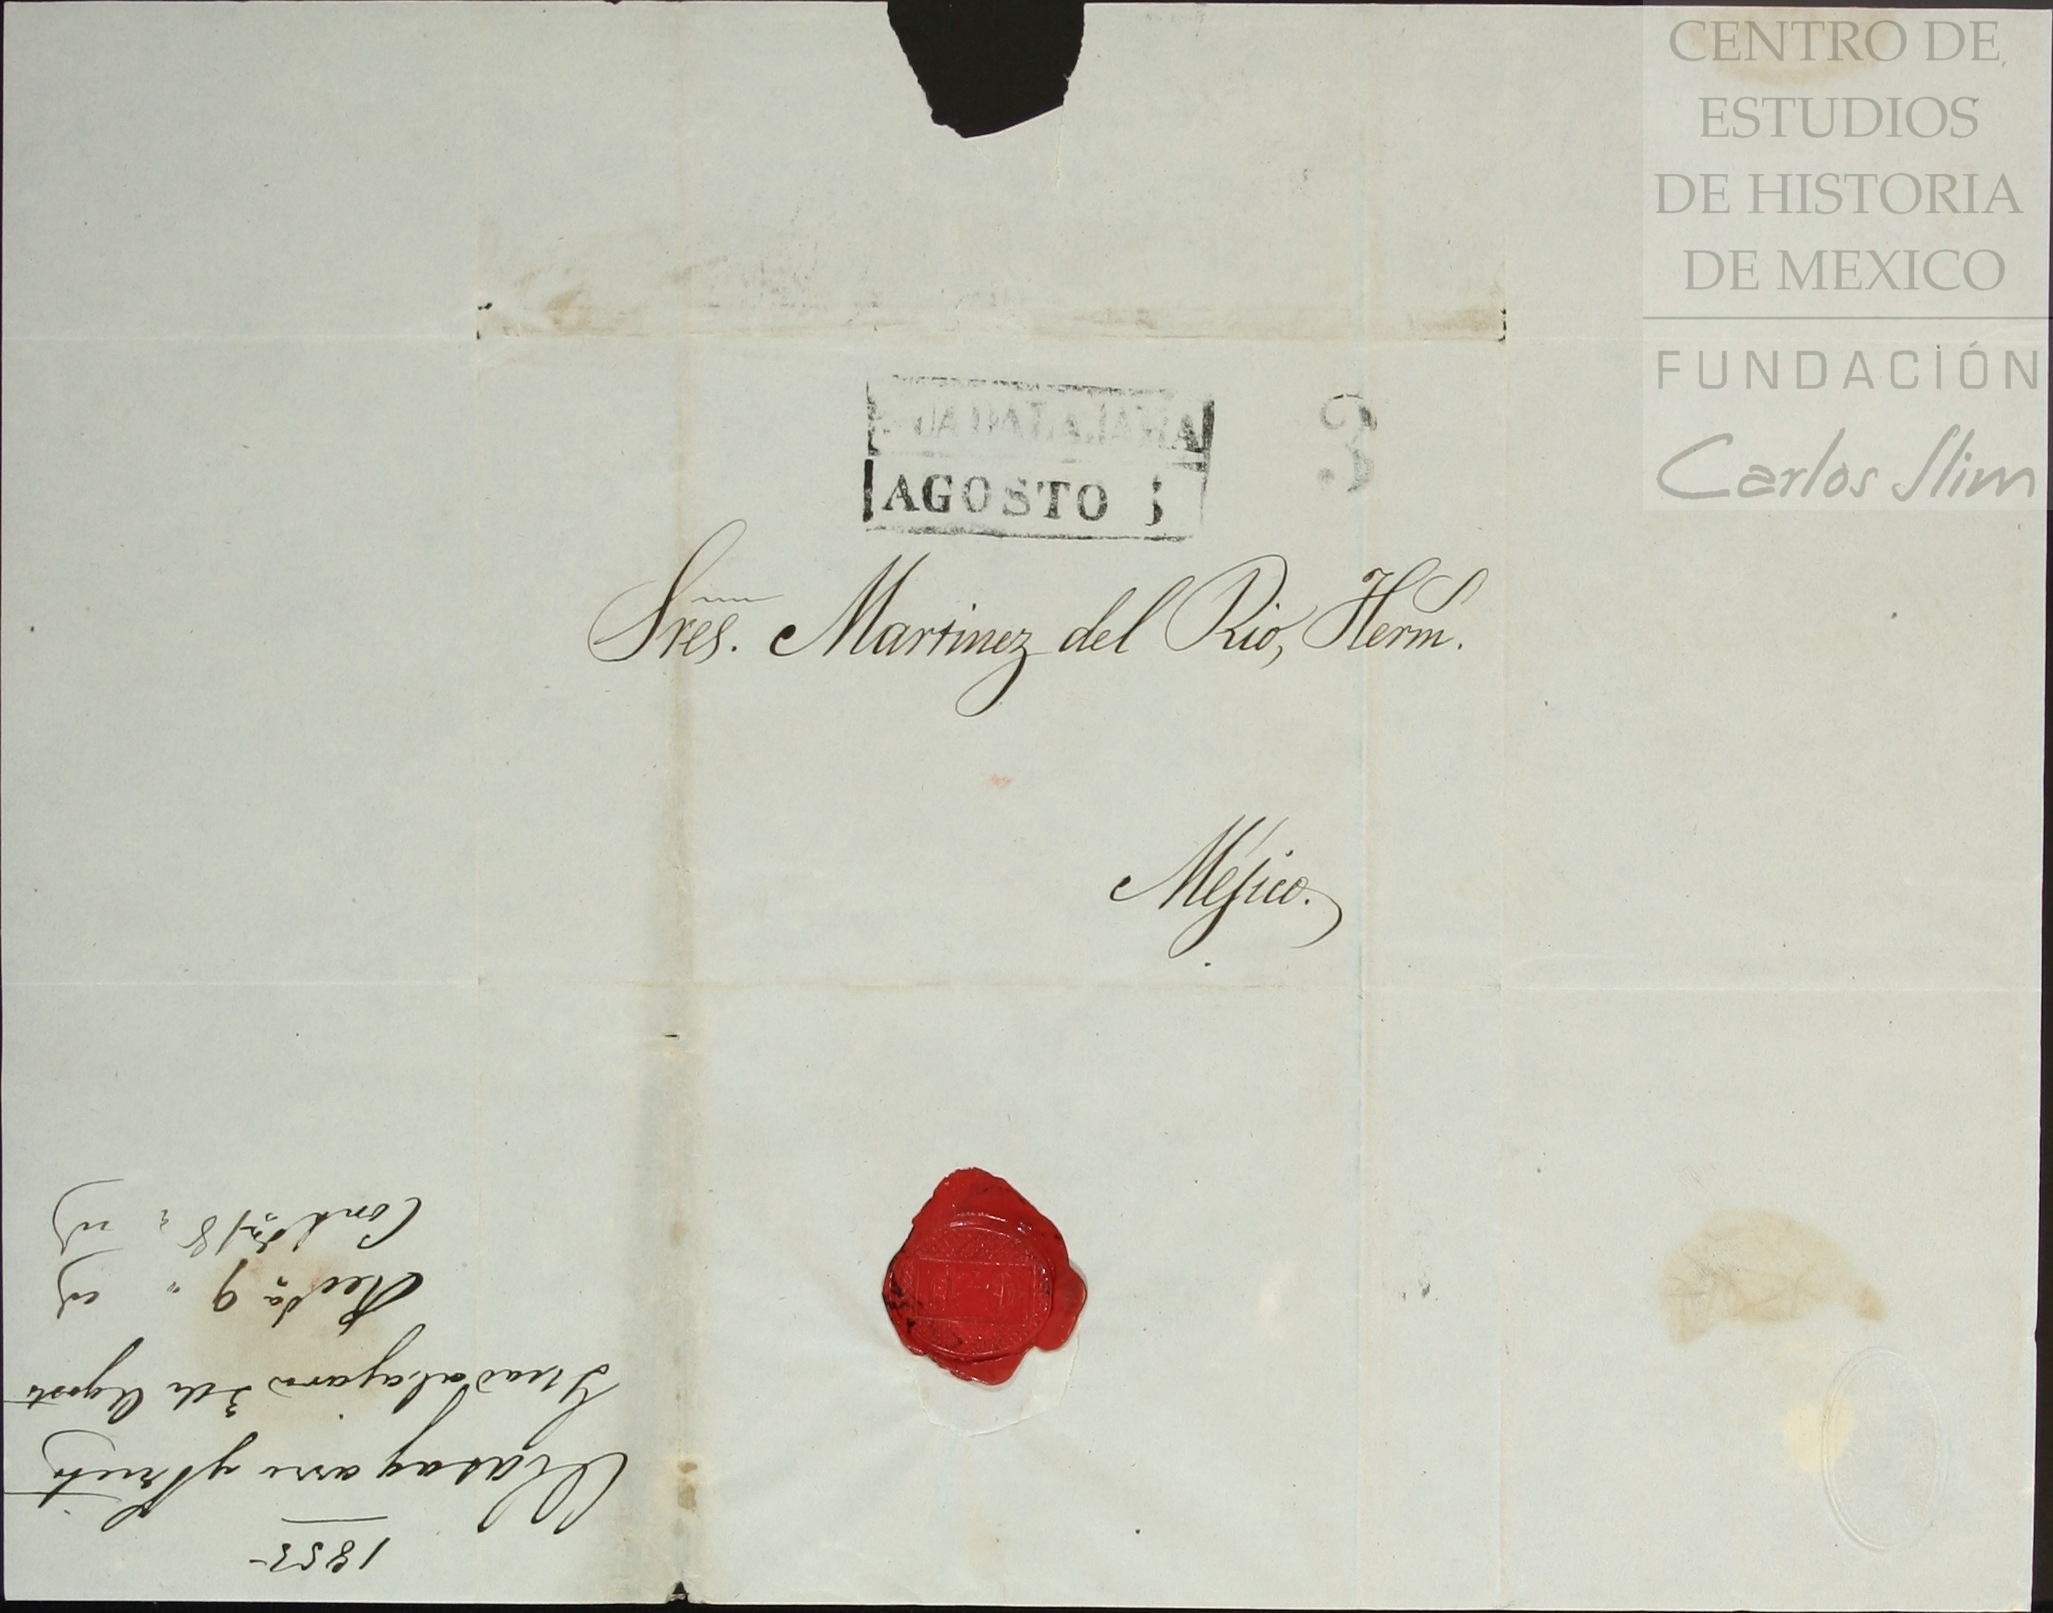 CENTRO DE
ESTUDIOS
DE HISTORIA
DE MEXICO
FUNDACIÓN
Carlos Slim
GUADALAJARA
AGOSTO
3
Sres. Martinez del Rio, Herm.
Méjico.
1855
Olasagarri y Prieto
Guadalajara 3 de Agosto
Recda 9 " "
Contda 18 " "